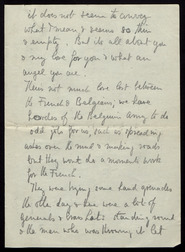 it does not seem to convey
what I mean & seems so thin
& empty. But its all about you
& my love for you & what an
angel you are.
Theres not much love lost between
the French & Belgians, we have
hoardes of the Belgian army to do
odd jobs for us, such as spreading
ashes over the mud & making roads
but they wont do a moments work
for the French.
They were trying some hand grenades
the other day & there was a lot of
generals & brass hats standing round
& the man who was throwing it let